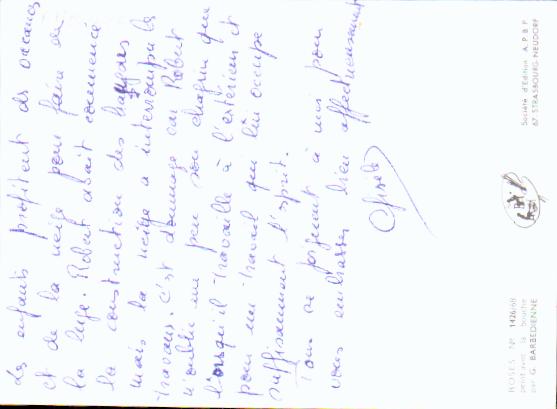 Les enfants profitent des vacances
et de la neige pour faire de
la luge. Robert avait commencé
la construction des hangars
mais la neige a interrompu les
travaux. C'est dommage car Robert
n'oublie un peu son chagrin que
lorsqu'il travaille à l'extérieur et
pour un travail qui lui occupe
suffisamment l'esprit.
Tous se joignent à moi pour
vous embrasser bien affectueusement
Gisèle
ROSES Nº 1426/68
peint avec la bouche
par G. BARBEDIENNE
Société d'Edition A.P.B.P.
67 STRASBOURG-NEUDORF